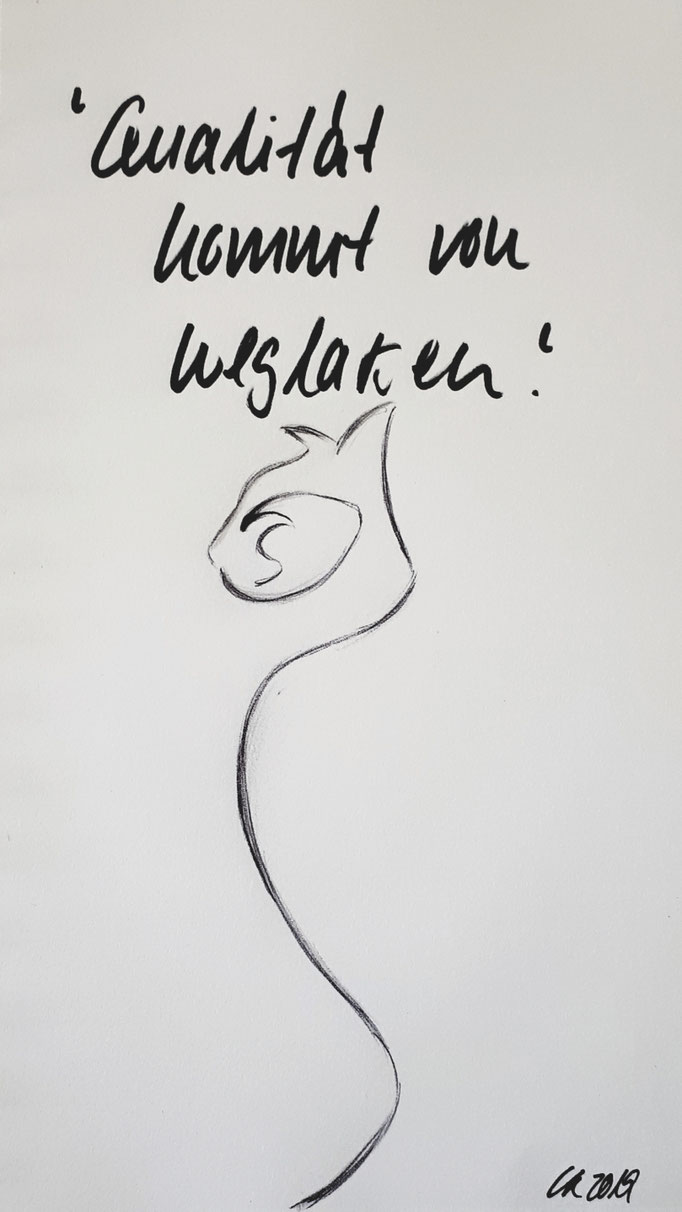 'Qualität
kommt von
weglassen.'
2019